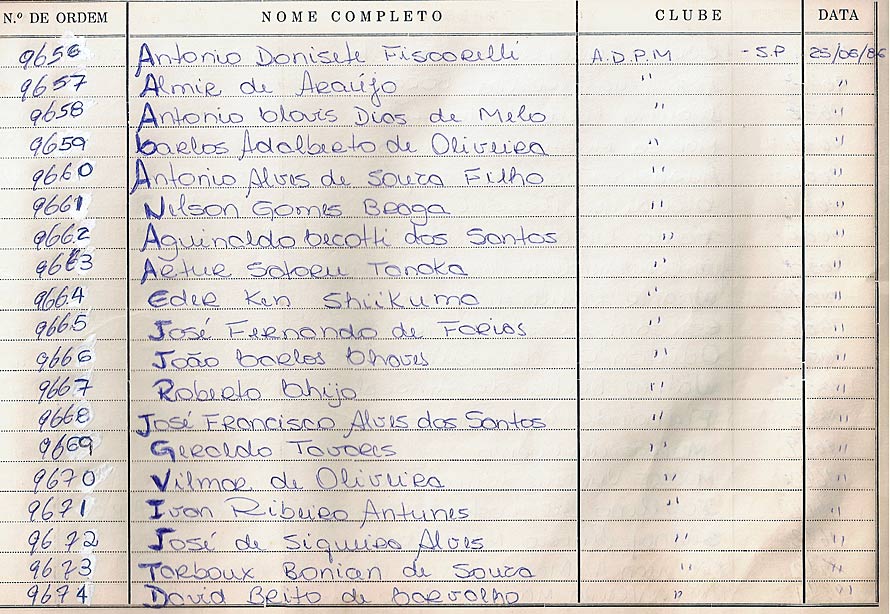 N.º DE ORDEM NOME COMPLETO CLUBE DATA
9656 Antonio Donisete Fiscarelli A.D.P.M - S.P 25/06/86
9657 Almir de Araújo " "
9658 Antonio Clovis Dias de Melo " "
9659 Carlos Adalberto de Oliveira " "
9660 Antonio Alves de Souza Filho " "
9661 Nilson Gomes Braga " "
9662 Aguinaldo Cecotti dos Santos " "
9663 Artur Satoru Tanaka " "
9664 Eder Ken Shiikuma " "
9665 José Fernando de Farias " "
9666 João Carlos Chaves " "
9667 Roberto Chijo " "
9668 José Francisco Alves dos Santos " "
9669 Geraldo Tavares " "
9670 Vilmar de Oliveira " "
9671 Ivan Ribeiro Antunes " "
9672 José de Siqueira Alves " "
9673 Tarboux Bonian de Souza " "
9674 David Brito de Carvalho " "